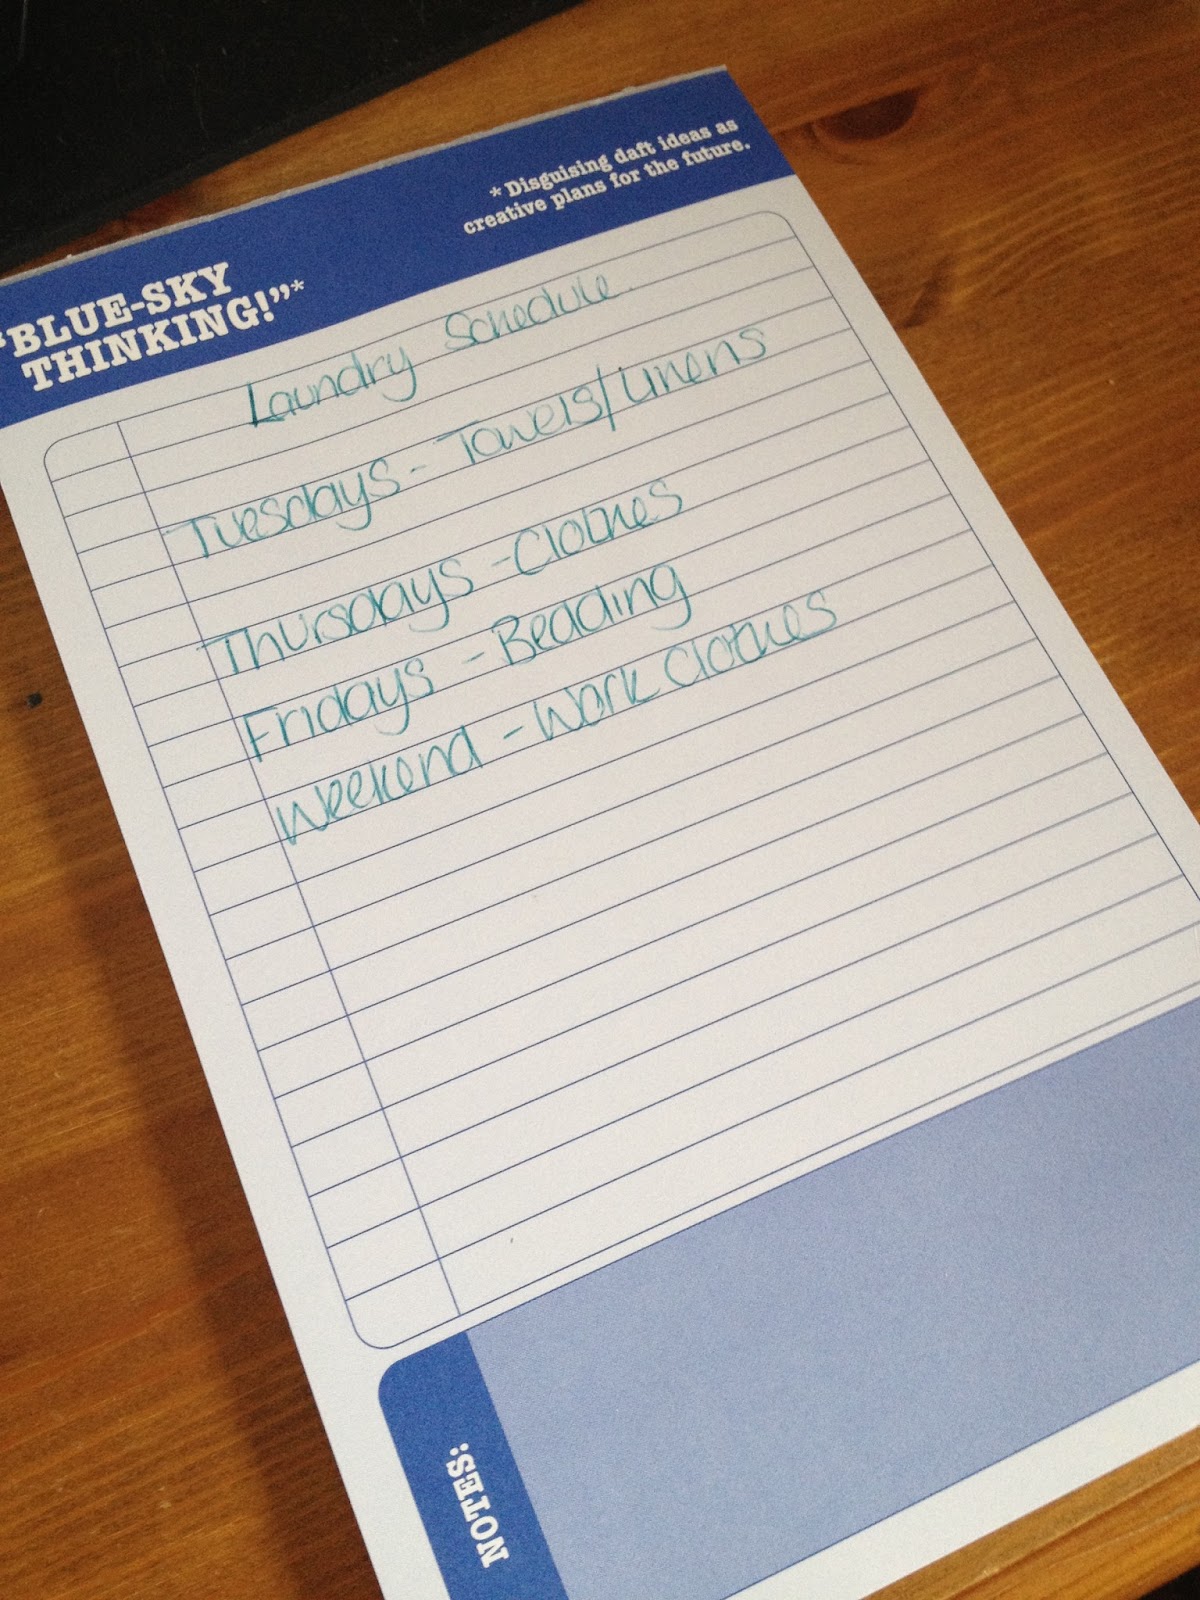 "BLUE-SKY
THINKING!"*
* Disguising daft ideas as
creative plans for the future.
Laundry Schedule.
Tuesdays - Towels/Linens
Thursdays - Clothes
Fridays - Beading
Weekend - Work Clothes
NOTES: